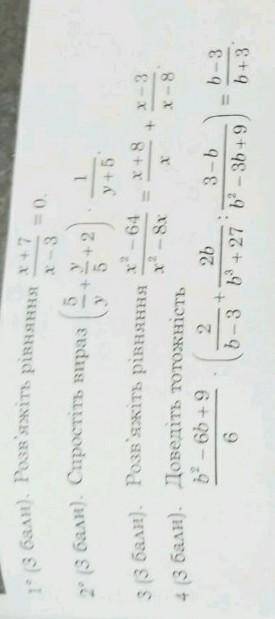 1° (3 бали). Розв'яжіть рівняння (x + 7)/(x − 3) = 0.
2° (3 бали). Спростіть вираз (5/y + y/5 + 2) · 1/(y + 5).
3 (3 бали). Розв'яжіть рівняння (x² − 64)/(x² − 8x) = (x + 8)/x + (x − 3)/(x − 8).
4 (3 бали). Доведіть тотожність
(b² − 6b + 9)/6 · (2/(b − 3) + 2b/(b³ + 27) : (3 − b)/(b² − 3b + 9)) = (b − 3)/(b + 3).